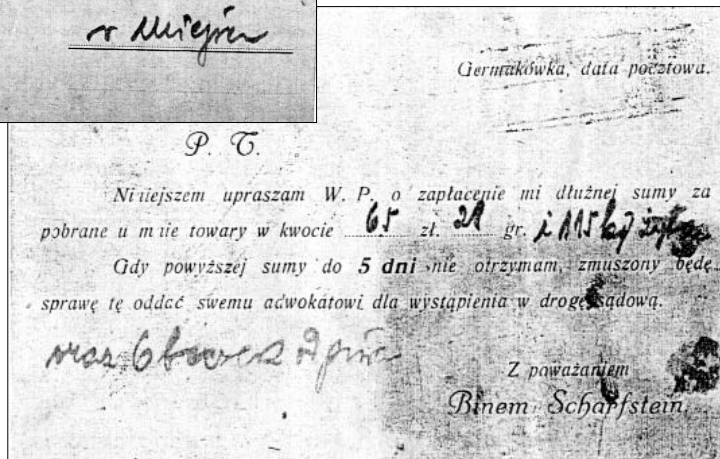 w miejscu
Germakówka, data pocztowa.
P. T.
Niniejszem upraszam W. P. o zapłacenie mi dłużnej sumy za
pobrane u mnie towary w kwocie 65 zł. 21 gr. i 115 kg żyta
Gdy powyższej sumy do 5 dni nie otrzymam, zmuszony będę
sprawę tę oddać swemu adwokatowi dla wystąpienia w drogę sądową.
oraz 6
Z poważaniem
Binem Scharfstein.